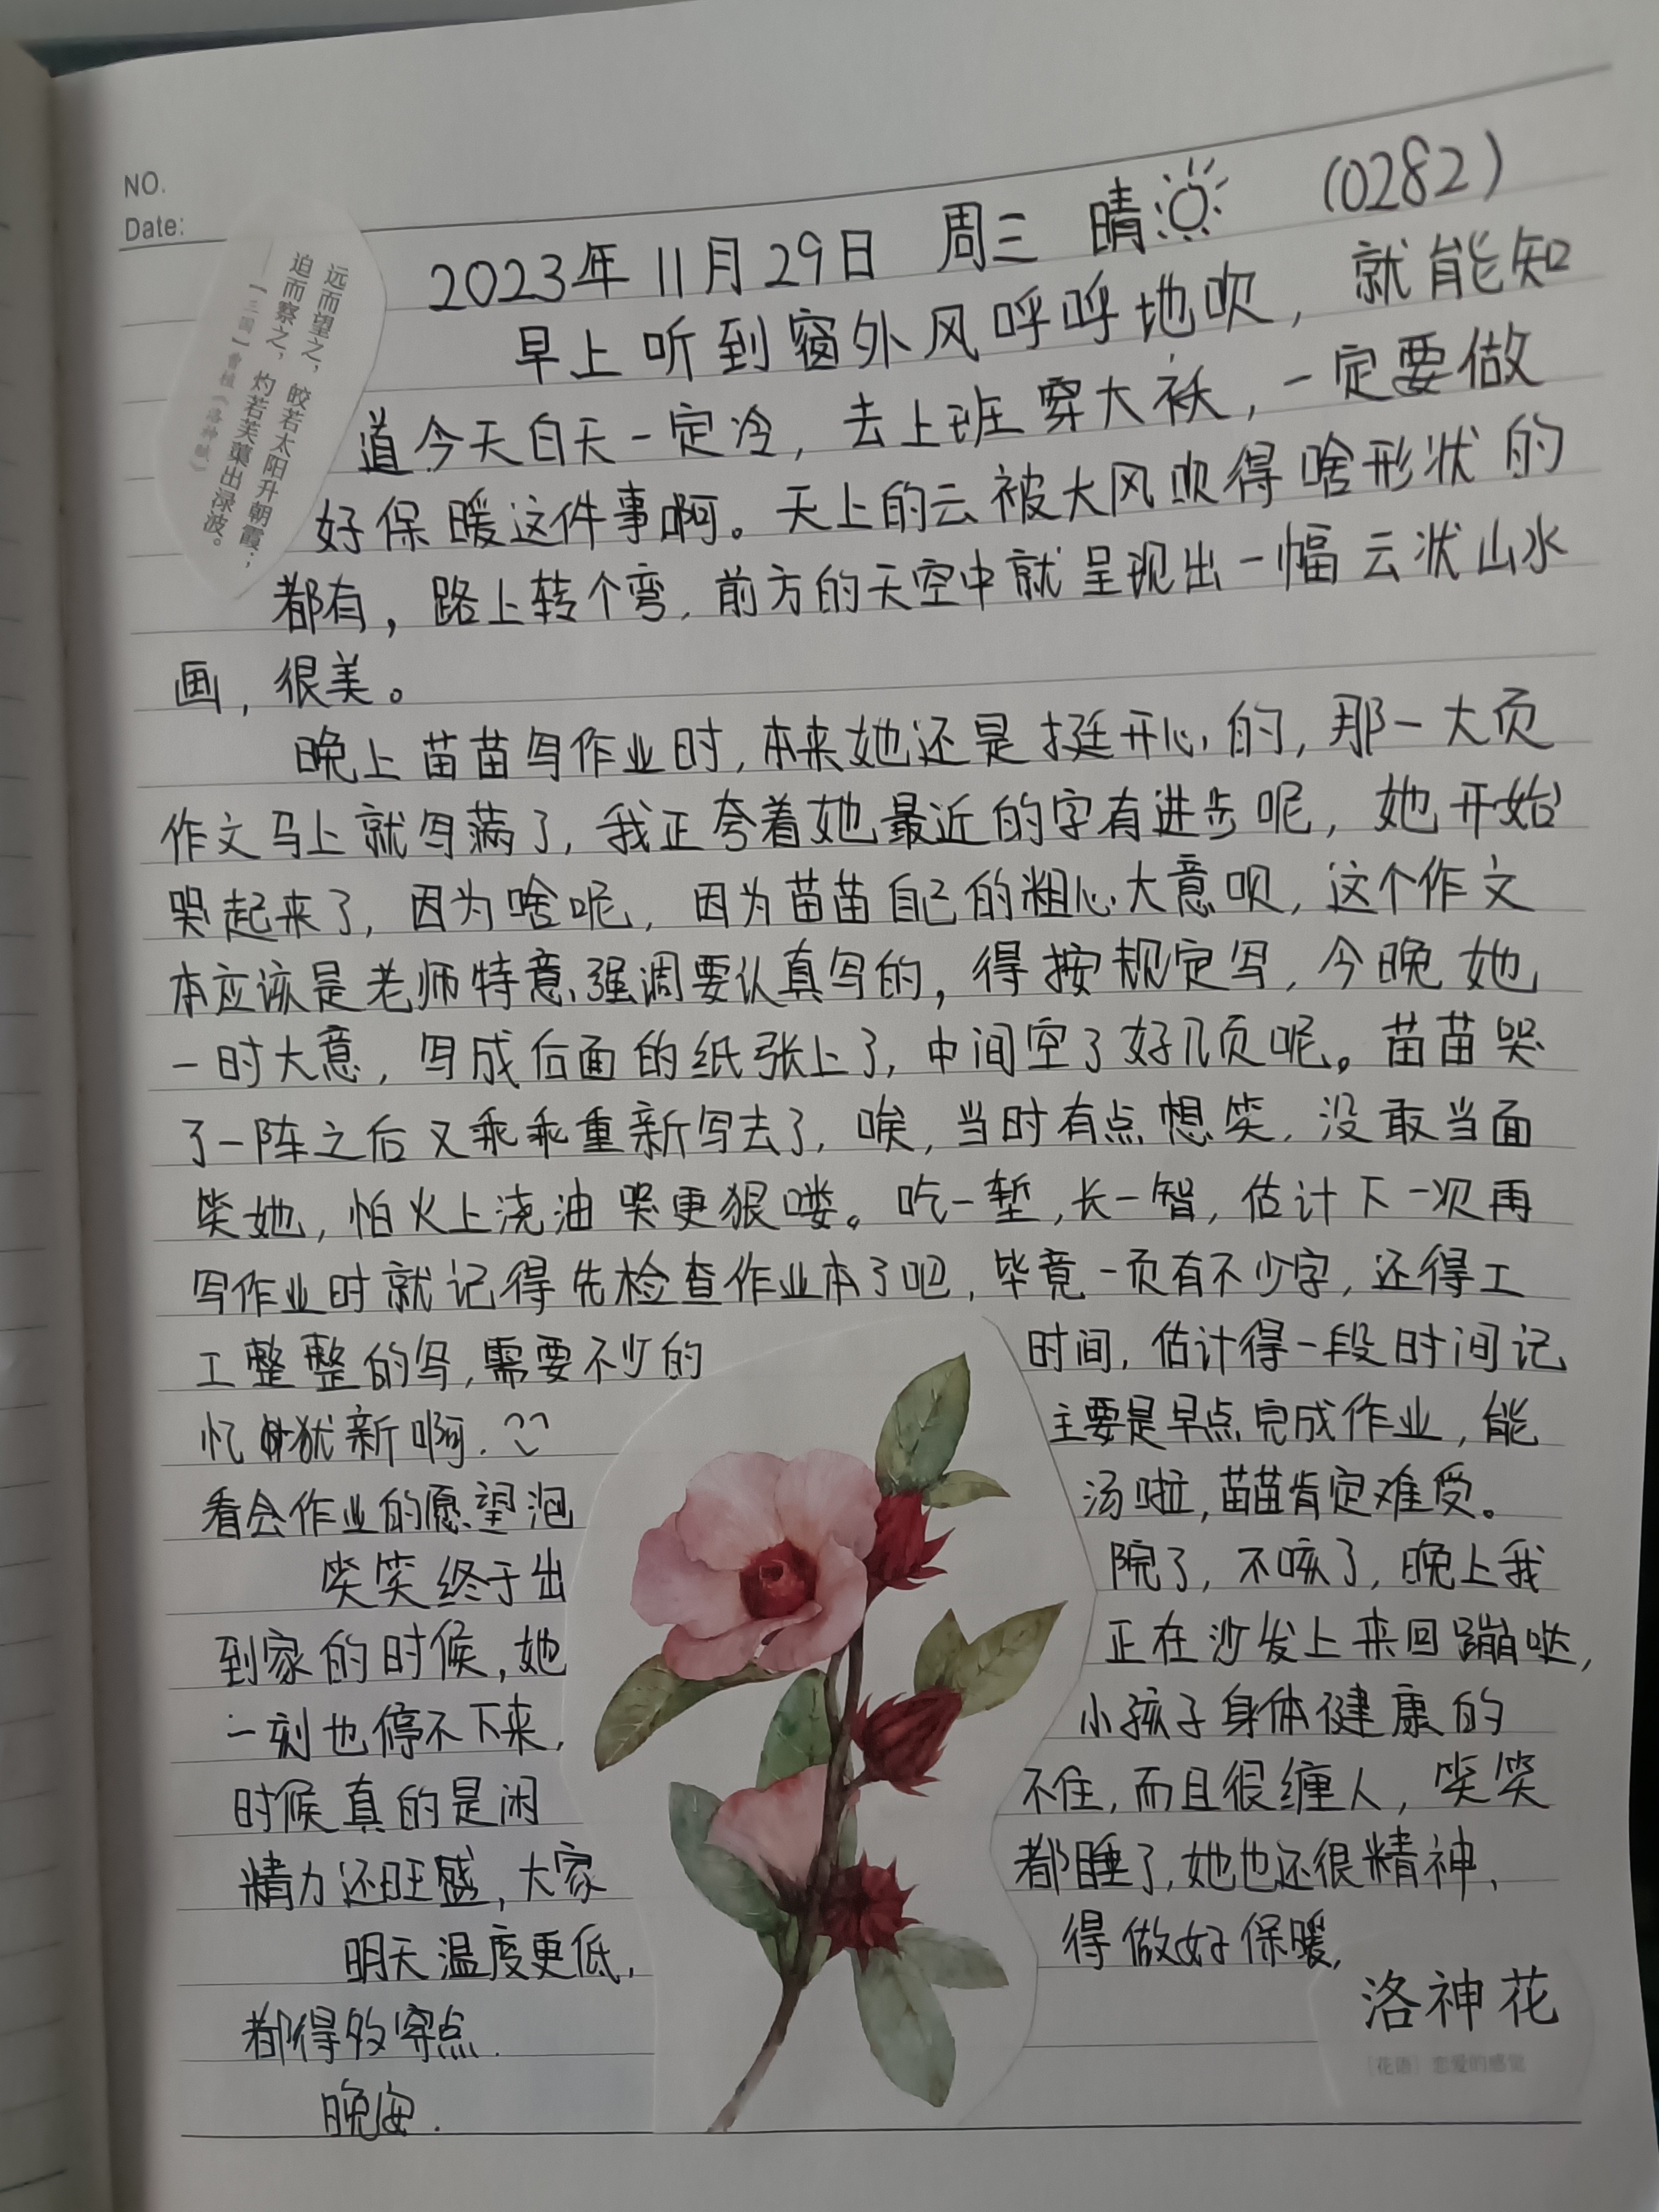 NO.
Date:
远而望之，皎若太阳升朝霞；
迫而察之，灼若芙蕖出渌波。
——［三国］曹植《洛神赋》
2023年11月29日 周三 晴 (0282)
早上听到窗外风呼呼地吹，就能知
道今天白天一定冷，去上班穿大袄，一定要做
好保暖这件事啊。天上的云被大风吹得啥形状的
都有，路上转个弯，前方的天空中就呈现出一幅云状山水
画，很美。
晚上苗苗写作业时，本来她还是挺开心的，那一大页
作文马上就写满了，我正夸着她最近的字有进步呢，她开始
哭起来了，因为啥呢，因为苗苗自己的粗心大意呗，这个作文
本应该是老师特意强调要认真写的，得按规定写，今晚她
一时大意，写成后面的纸张上了，中间空了好几页呢。苗苗哭
了一阵之后又乖乖重新写去了，唉，当时有点想笑，没敢当面
笑她，怕火上浇油哭更狠喽。吃一堑，长一智，估计下一次再
写作业时就记得先检查作业本了吧，毕竟一页有不少字，还得工
工整整的写，需要不少的时间，估计得一段时间记
忆犹新啊。主要是早点完成作业，能
看会作业的愿望泡汤啦，苗苗肯定难受。
笑笑终于出院了，不咳了，晚上我
到家的时候，她正在沙发上来回蹦哒，
一刻也停不下来，小孩子身体健康的
时候真的是闲不住，而且很缠人，笑笑
精力还旺盛，大家都睡了，她也还很精神，
明天温度更低，得做好保暖，
都得多穿点.
晚安.
洛神花
［花语］恋爱的感觉